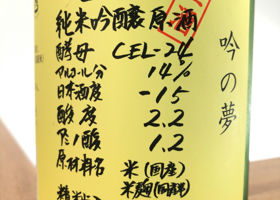 純米吟醸原酒
酵母 CEL-24
アルコール分 14%
日本酒度 -15
酸度 2.2
アミノ酸 1.2
原材料名 米(国産)
米麹(国産米)
精米
吟の夢